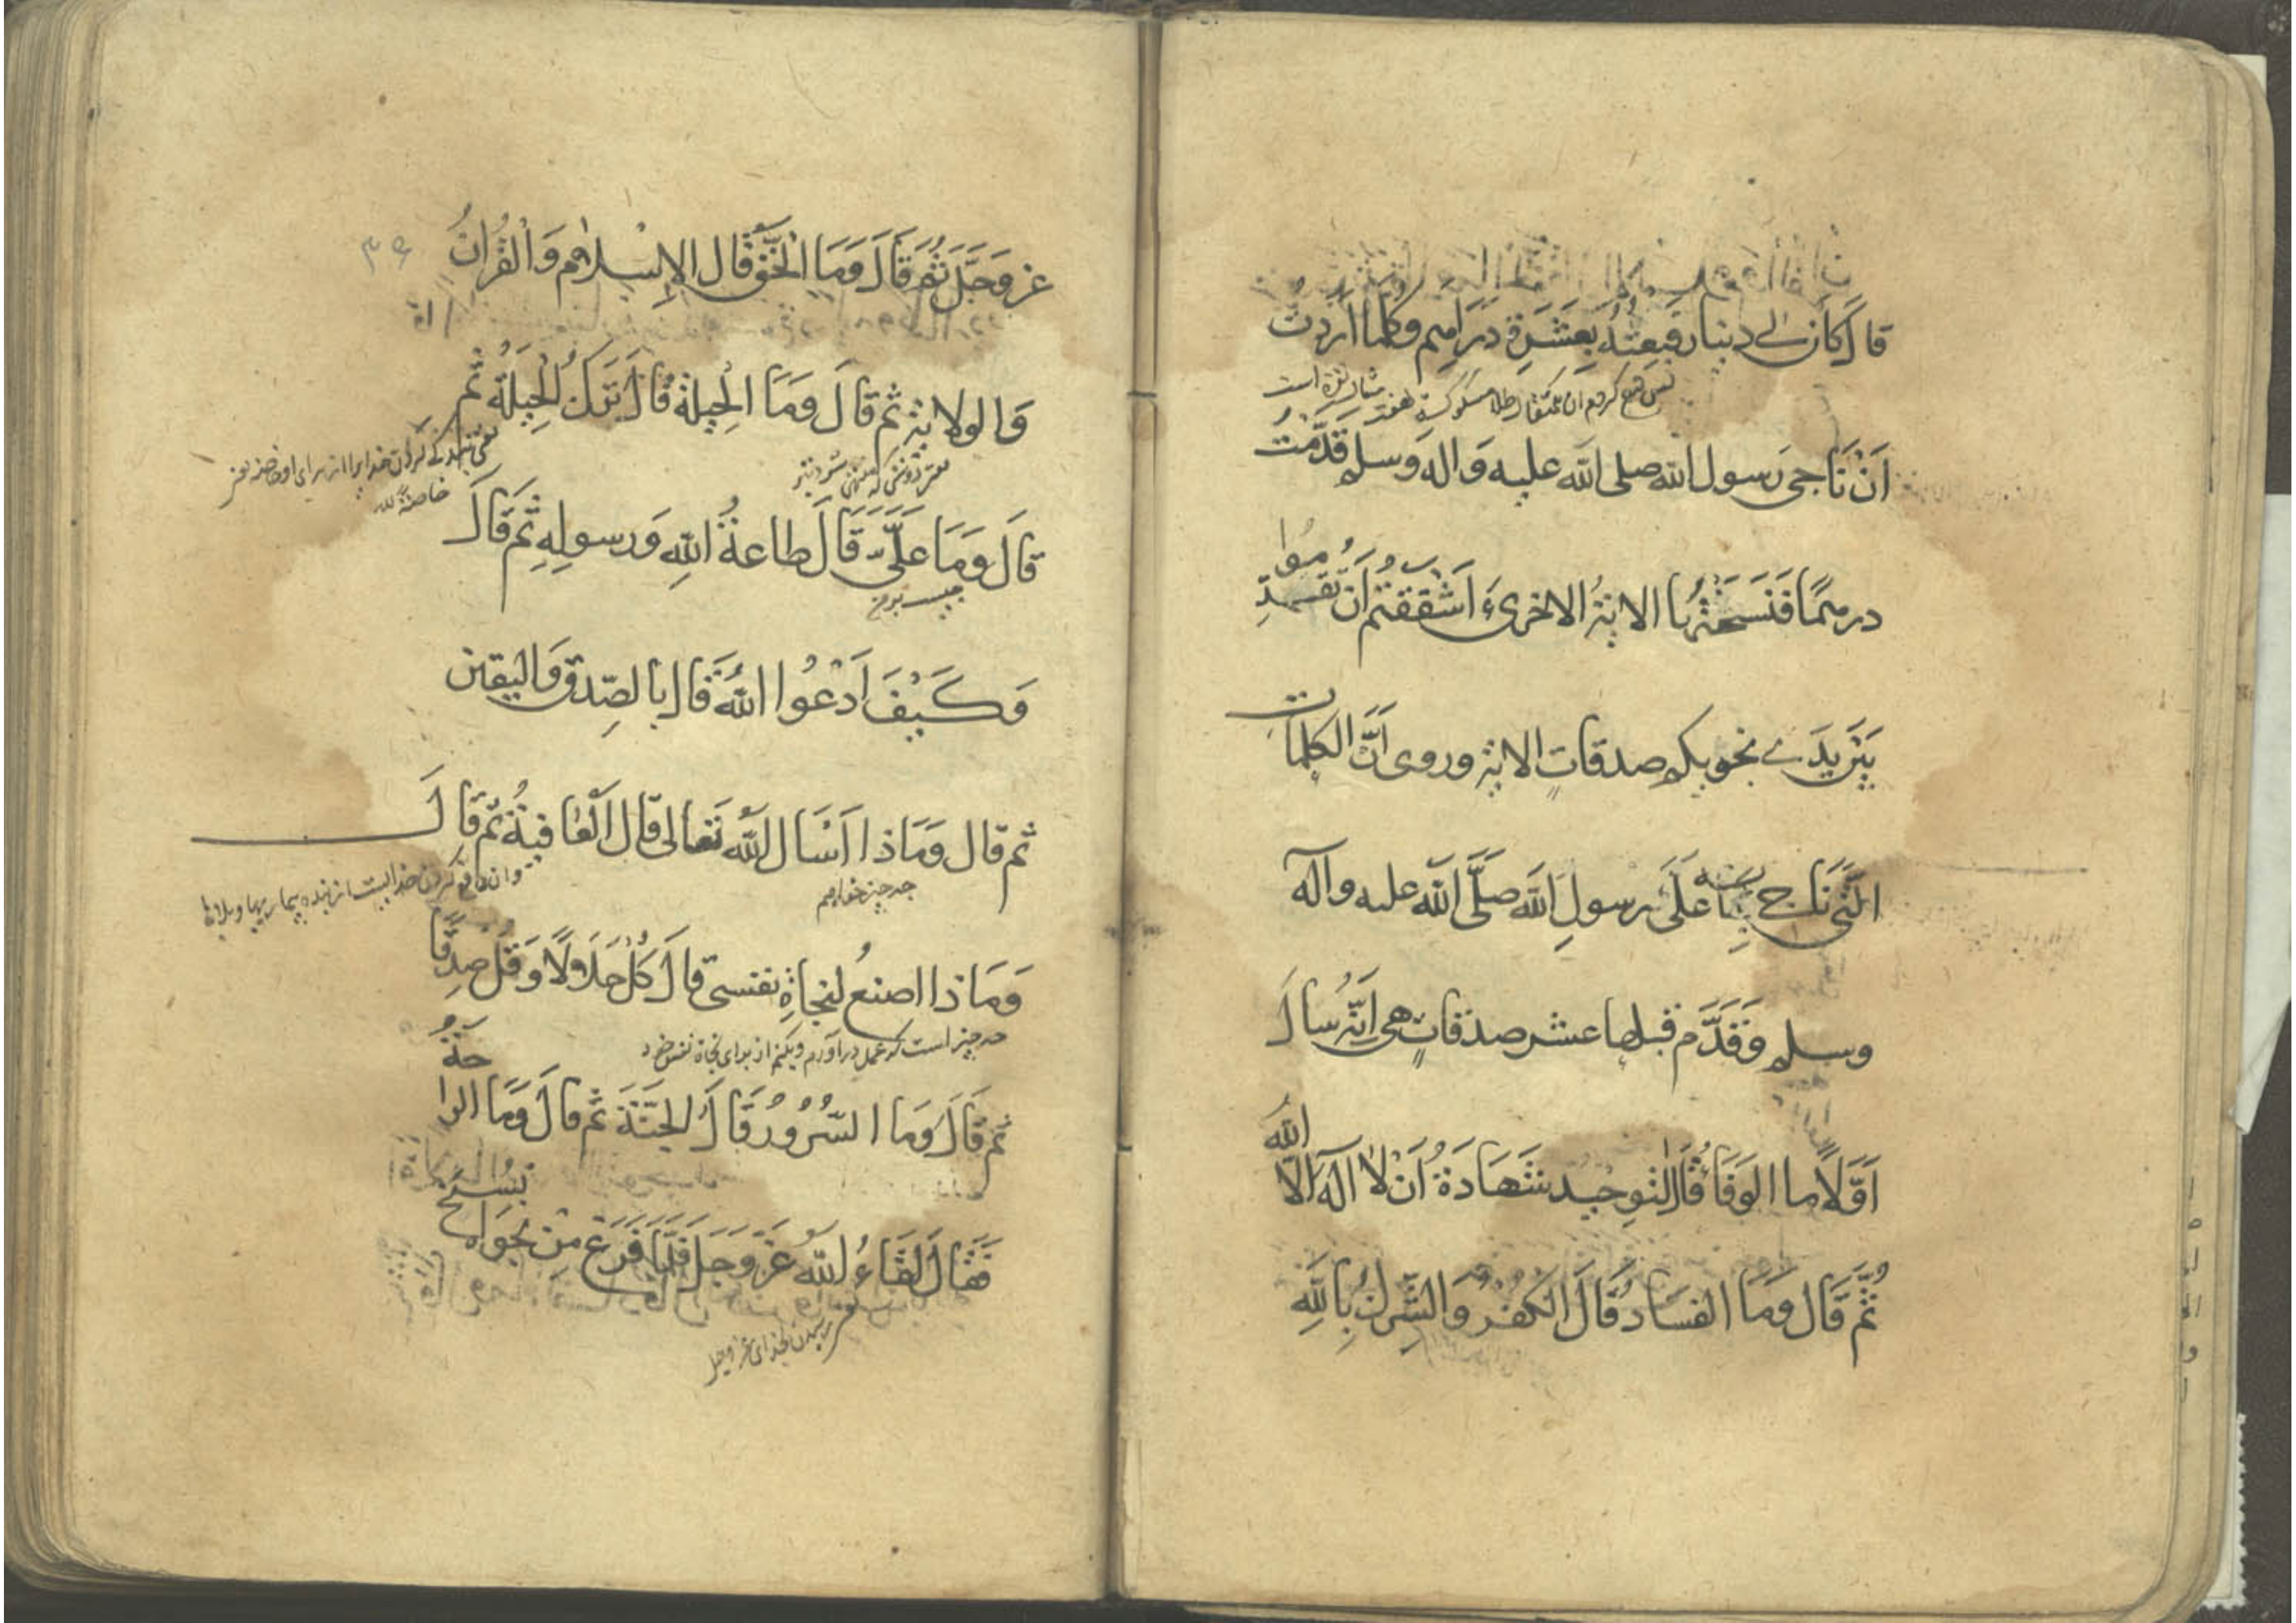 قَالَ كَانَ لي دينار فَبِعتُهُ بِعَشَرَةِ دَرَاهِم وكلما اَردتُ
اَنْ نَاجى رَسول الله صلى الله عليه وَاله وَسلم قَدَّمتُ
درهمًا فَنَسَخَتْهَا الايَةُ الاخرىَ ءَاَشْفَقتُم اَن تُقَدِّمُوا
بَيْنَ يَدَي نجويكم صدقاتٍ الاية وروى اَنَّ الكلمات
الَّتى نَاجى بِهَا عَلىَ رسولِ الله صَلَّى الله عليه وآله
وسلم وَقَدَّم قبلها عشر صدقاتٍ هى اَنَّهُ سالَ
اَوَّلًا ما الوَفَاءُ قَالَ التوحيد شَهَادَةُ اَنْ لا آلهَ الاّ اللهُ
ثُمَّ قَال وَمَا الفسَاد قَالَ الكُفرُ وَالشِّركُ بِاللهِ
عز وَجَلَّ ثُمَ قَالَ وَمَا الْحَقّ قَال الاِسْلام وَالْقُرانُ
وَالولاية ثم قال وَمَا الْحِيلة قَالَ تَركُ الْحِيلَةُ ثُم
قالَ وَمَا عَلَىَّ قَالَ طاعةُ اللهِ وَرسولِهِ ثم قَالَ
وَكَيْفَ اَدْعُوا اللهَ قَالَ بالصِّدقِ وَاليقين
ثم قال وَمَاذا اَسْاَل اللهَ تَعالى قال الْعَافيةُ ثم قَالَ
چه چیز خواهم
وَمَاذا اصنعُ لنجاةِ نفسى قالَ كُلْ حَلَالًا وَقُل صِدقًا
چه چیز است که عمل درآورم و بکنم از برای نجاة نفس خود
ثم قَالَ وَمَا السُّرُورُ قَالَ الجَنَّة ثم قالَ وَمَا الراحَةُ
فَقَالَ لقَاءُ اللهِ عَزَّ وَجَلَ فَلَمَّا فَرَغَ مِنْ نجواه نُسِخَ
رسیدن بخدای عز و جل